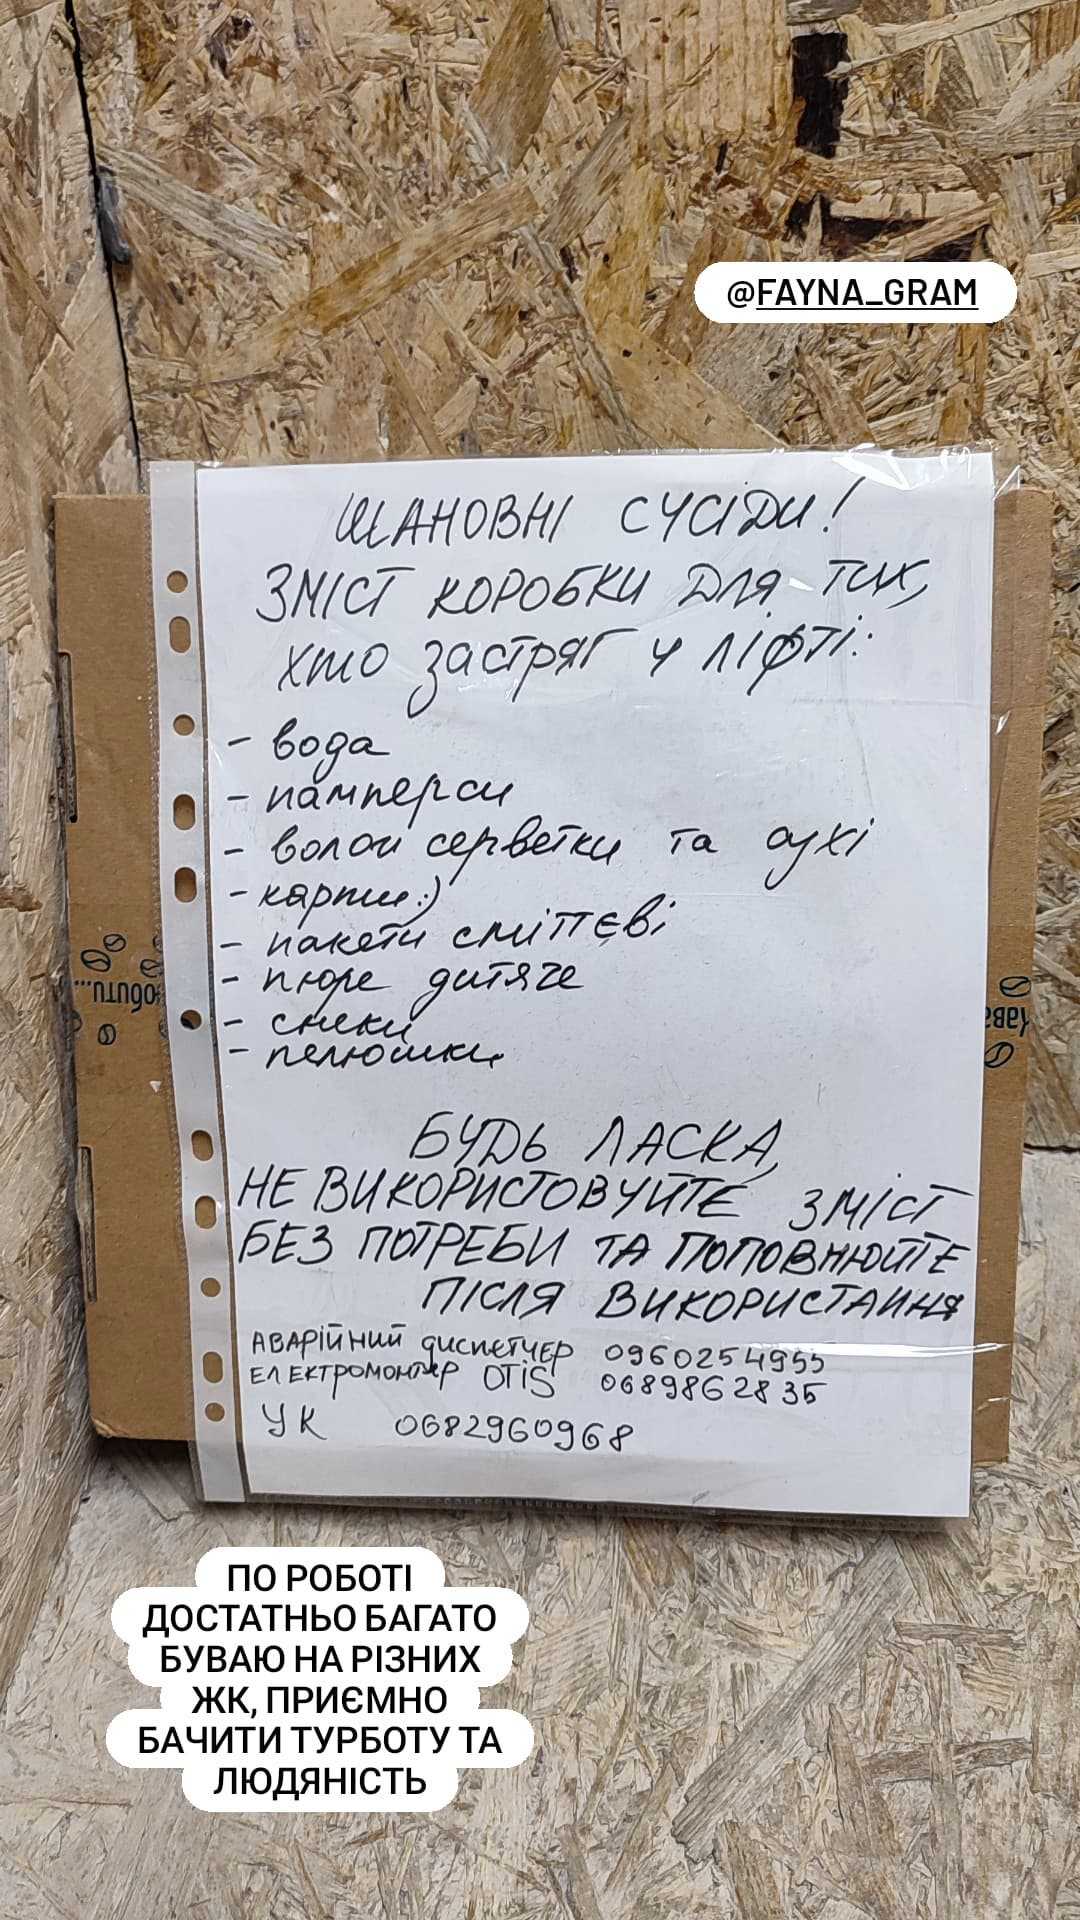 @FAYNA_GRAM
ШАНОВНІ СУСІДИ!
ЗМІСТ КОРОБКИ ДЛЯ ТИХ,
ХТО ЗАСТРЯГ У ЛІФТІ:
- вода
- памперси
- вологі серветки та сухі
- карти :)
- пакети сміттєві
- пюре дитяче
- снеки
- пелюшки
БУДЬ ЛАСКА,
НЕ ВИКОРИСТОВУЙТЕ ЗМІСТ
БЕЗ ПОТРЕБИ ТА ПОПОВНЮЙТЕ
ПІСЛЯ ВИКОРИСТАННЯ
АВАРІЙНИЙ ДИСПЕТЧЕР 0960254955
ЕЛЕКТРОМОНТЕР OTIS 0689862835
УК 0682960968
ПО РОБОТІ
ДОСТАТНЬО БАГАТО
БУВАЮ НА РІЗНИХ
ЖК, ПРИЄМНО
БАЧИТИ ТУРБОТУ ТА
ЛЮДЯНІСТЬ